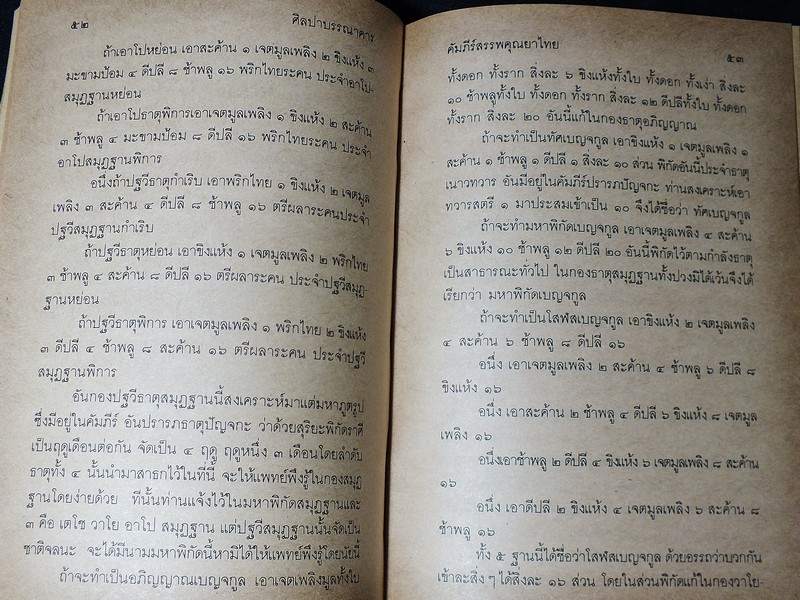 ๕๒
ศิลปาบรรณาคาร
ถ้าเอาโปหย่อน เอาสะค้าน ๑ เจตมูลเพลิง ๒ ขิงแห้ง ๓
มะขามป้อม ๔ ดีปลี ๘ ช้าพลู ๑๖ พริกไทยระคน ประจำอาโป-
สมุฏฐานหย่อน
ถ้าเอาโปธาตุพิการเอาเจตมูลเพลิง ๑ ขิงแห้ง ๒ สะค้าน
๓ ช้าพลู ๔ มะขามป้อม ๘ ดีปลี ๑๖ พริกไทยระคน ประจำ
อาโปสมุฏฐานพิการ
อนึ่งถ้าปฐวีธาตุกำเริบ เอาพริกไทย ๑ ขิงแห้ง ๒ เจตมูล
เพลิง ๓ สะค้าน ๔ ดีปลี ๘ ช้าพลู ๑๖ ตรีผลาระคนประจำ
ปฐวีสมุฏฐานกำเริบ
ถ้าปฐวีธาตุหย่อน เอาขิงแห้ง ๑ เจตมูลเพลิง ๒ พริกไทย
๓ ช้าพลู ๔ สะค้าน ๘ ดีปลี ๑๖ ตรีผลาระคน ประจำปฐวีสมุฏ-
ฐานหย่อน
ถ้าปฐวีธาตุพิการ เอาเจตมูลเพลิง ๑ พริกไทย ๒ ขิงแห้ง
๓ ดีปลี ๔ ช้าพลู ๘ สะค้าน ๑๖ ตรีผลาระคน ประจำปฐวี
สมุฏฐานพิการ
อันกองปฐวีธาตุสมุฏฐานนี้สงเคราะห์มาแต่มหาภูตรูป
ซึ่งมีอยู่ในคัมภีร์ อันปรารภธาตุปัญจกะ ว่าด้วยสุริยะพิกัดราศี
เป็นฤดูเดือนต่อกัน จัดเป็น ๔ ฤดู ฤดูหนึ่ง ๓ เดือนโดยลำดับ
ธาตุทั้ง ๔ นั้นนำมาสาธกไว้ในที่นี้ จะให้แพทย์พึงรู้ในกองสมุฏ
ฐานโดยง่ายด้วย ที่นั้นท่านแจ้งไว้ในมหาพิกัดสมุฏฐานและ
๓ คือ เตโช วาโย อาโป สมุฏฐาน แต่ปฐวีสมุฏฐานนั้นจัดเป็น
ชาติจลนะ จะได้มีนามมหาพิกัดนี้หามิได้ให้แพทย์พึงรู้โดยนัยนี้
ถ้าจะทำเป็นอภิญญาณเบญจกูล เอาเจตเพลิงมูลทั้งใบ
คัมภีร์สรรพคุณยาไทย
๕๓
ทั้งดอก ทั้งราก สิ่งละ ๖ ขิงแห้งทั้งใบ ทั้งดอก ทั้งเง่า สิ่งละ
๑๐ ช้าพลูทั้งใบ ทั้งดอก ทั้งราก สิ่งละ ๑๒ ดีปลีทั้งใบ ทั้งดอก
ทั้งราก สิ่งละ ๒๐ อันนี้แก้ในกองธาตุอภิญญาณ
ถ้าจะทำเป็นทัศเบญจกูล เอาขิงแห้ง ๑ เจตมูลเพลิง ๑
สะค้าน ๑ ช้าพลู ๑ ดีปลี ๑ สิ่งละ ๑๐ ส่วน พิกัดอันนี้ประจำธาตุ
เนาวทวาร อันมีอยู่ในคัมภีร์ปรารภปัญจกะ ท่านสงเคราะห์เอา
ทวารสตรี ๑ มาประสมเข้าเป็น ๑๐ จึงได้ชื่อว่า ทัศเบญจกูล
ถ้าจะทำมหาพิกัดเบญจกูล เอาเจตมูลเพลิง ๔ สะค้าน
๖ ขิงแห้ง ๑๐ ช้าพลู ๑๒ ดีปลี ๒๐ อันนี้พิกัดไว้ตามกำลังธาตุ
เป็นสาธารณะทั่วไป ในกองธาตุสมุฏฐานทั้งปวงมิได้เว้นจึงได้
เรียกว่า มหาพิกัดเบญจกูล
ถ้าจะทำเป็นโสฬสเบญจกูล เอาขิงแห้ง ๒ เจตมูลเพลิง
๔ สะค้าน ๖ ช้าพลู ๘ ดีปลี ๑๖
อนึ่ง เอาเจตมูลเพลิง ๒ สะค้าน ๔ ช้าพลู ๖ ดีปลี ๘
ขิงแห้ง ๑๖
อนึ่ง เอาสะค้าน ๒ ช้าพลู ๔ ดีปลี ๖ ขิงแห้ง ๘ เจตมูล
เพลิง ๑๖
อนึ่งเอาช้าพลู ๒ ดีปลี ๔ ขิงแห้ง ๖ เจตมูลเพลิง ๘ สะค้าน
๑๖
อนึ่ง เอาดีปลี ๒ ขิงแห้ง ๔ เจตมูลเพลิง ๖ สะค้าน ๘
ช้าพลู ๑๖
ทั้ง ๕ ฐานนี้ได้ชื่อว่าโสฬสเบญจกูล ด้วยอรรถว่าบวกกัน
เข้าละสิ่ง ๆ ได้สิ่งละ ๑๖ ส่วน โดยในส่วนพิกัดแก้ในกองวาโย-